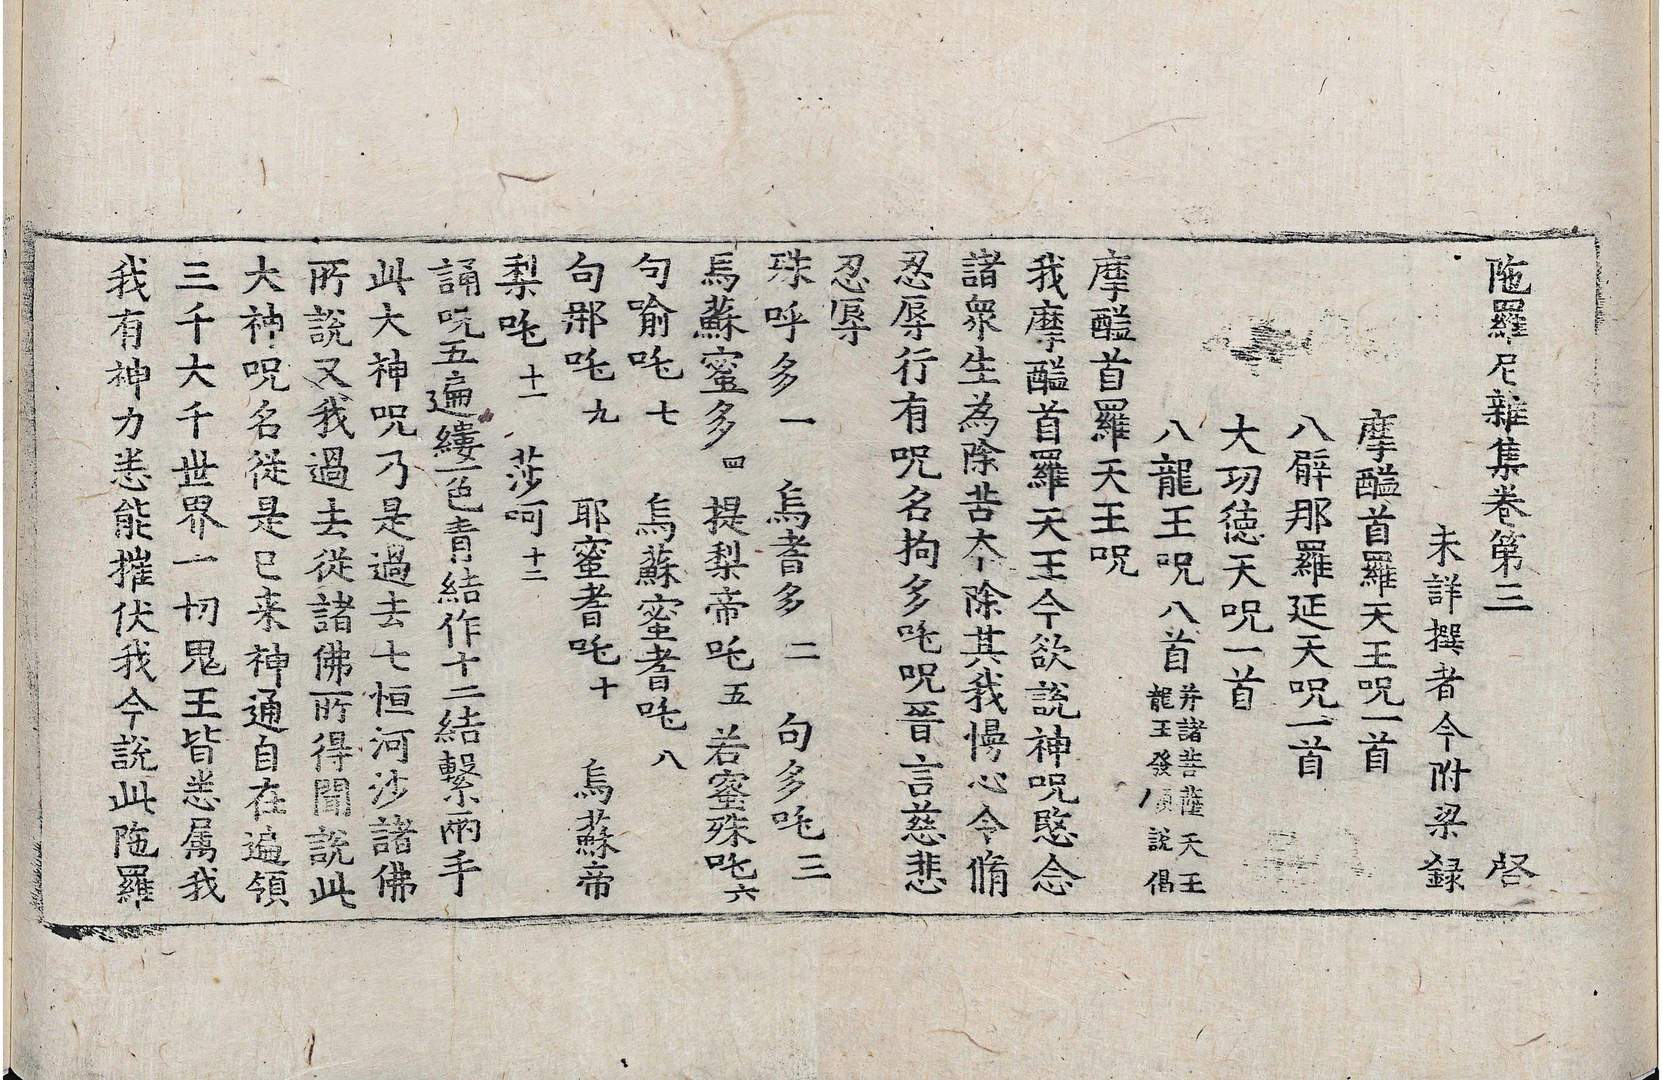 陁羅尼雜集卷第三 啓
未詳撰者今附梁録
摩醯首羅天王呪一首
八臂那羅延天呪一首
大功徳天呪一首
八龍王呪八首 并諸菩薩天王龍王發願說偈
摩醯首羅天王呪
我摩醯首羅天王今欲說神呪愍念
諸衆生為除苦夲除其我慢心令脩
忍辱行有呪名拘多吒呪晉言慈悲
忍辱
殊呼多一 烏耆多二 句多吒三
烏蘇蜜多四 提梨帝吒五 若蜜殊吒六
句喻吒七 烏蘇蜜耆吒八
句那吒九 耶蜜耆吒十 烏蘇帝
梨吒十一 莎呵十二
誦呪五遍縷一色青結作十二結繫兩手
此大神呪乃是過去七恒河沙諸佛
所說又我過去從諸佛所得聞說此
大神呪名從是已来神通自在遍領
三千大千世界一切鬼王皆悉属我
我有神力悉能摧伏我今說此陁羅